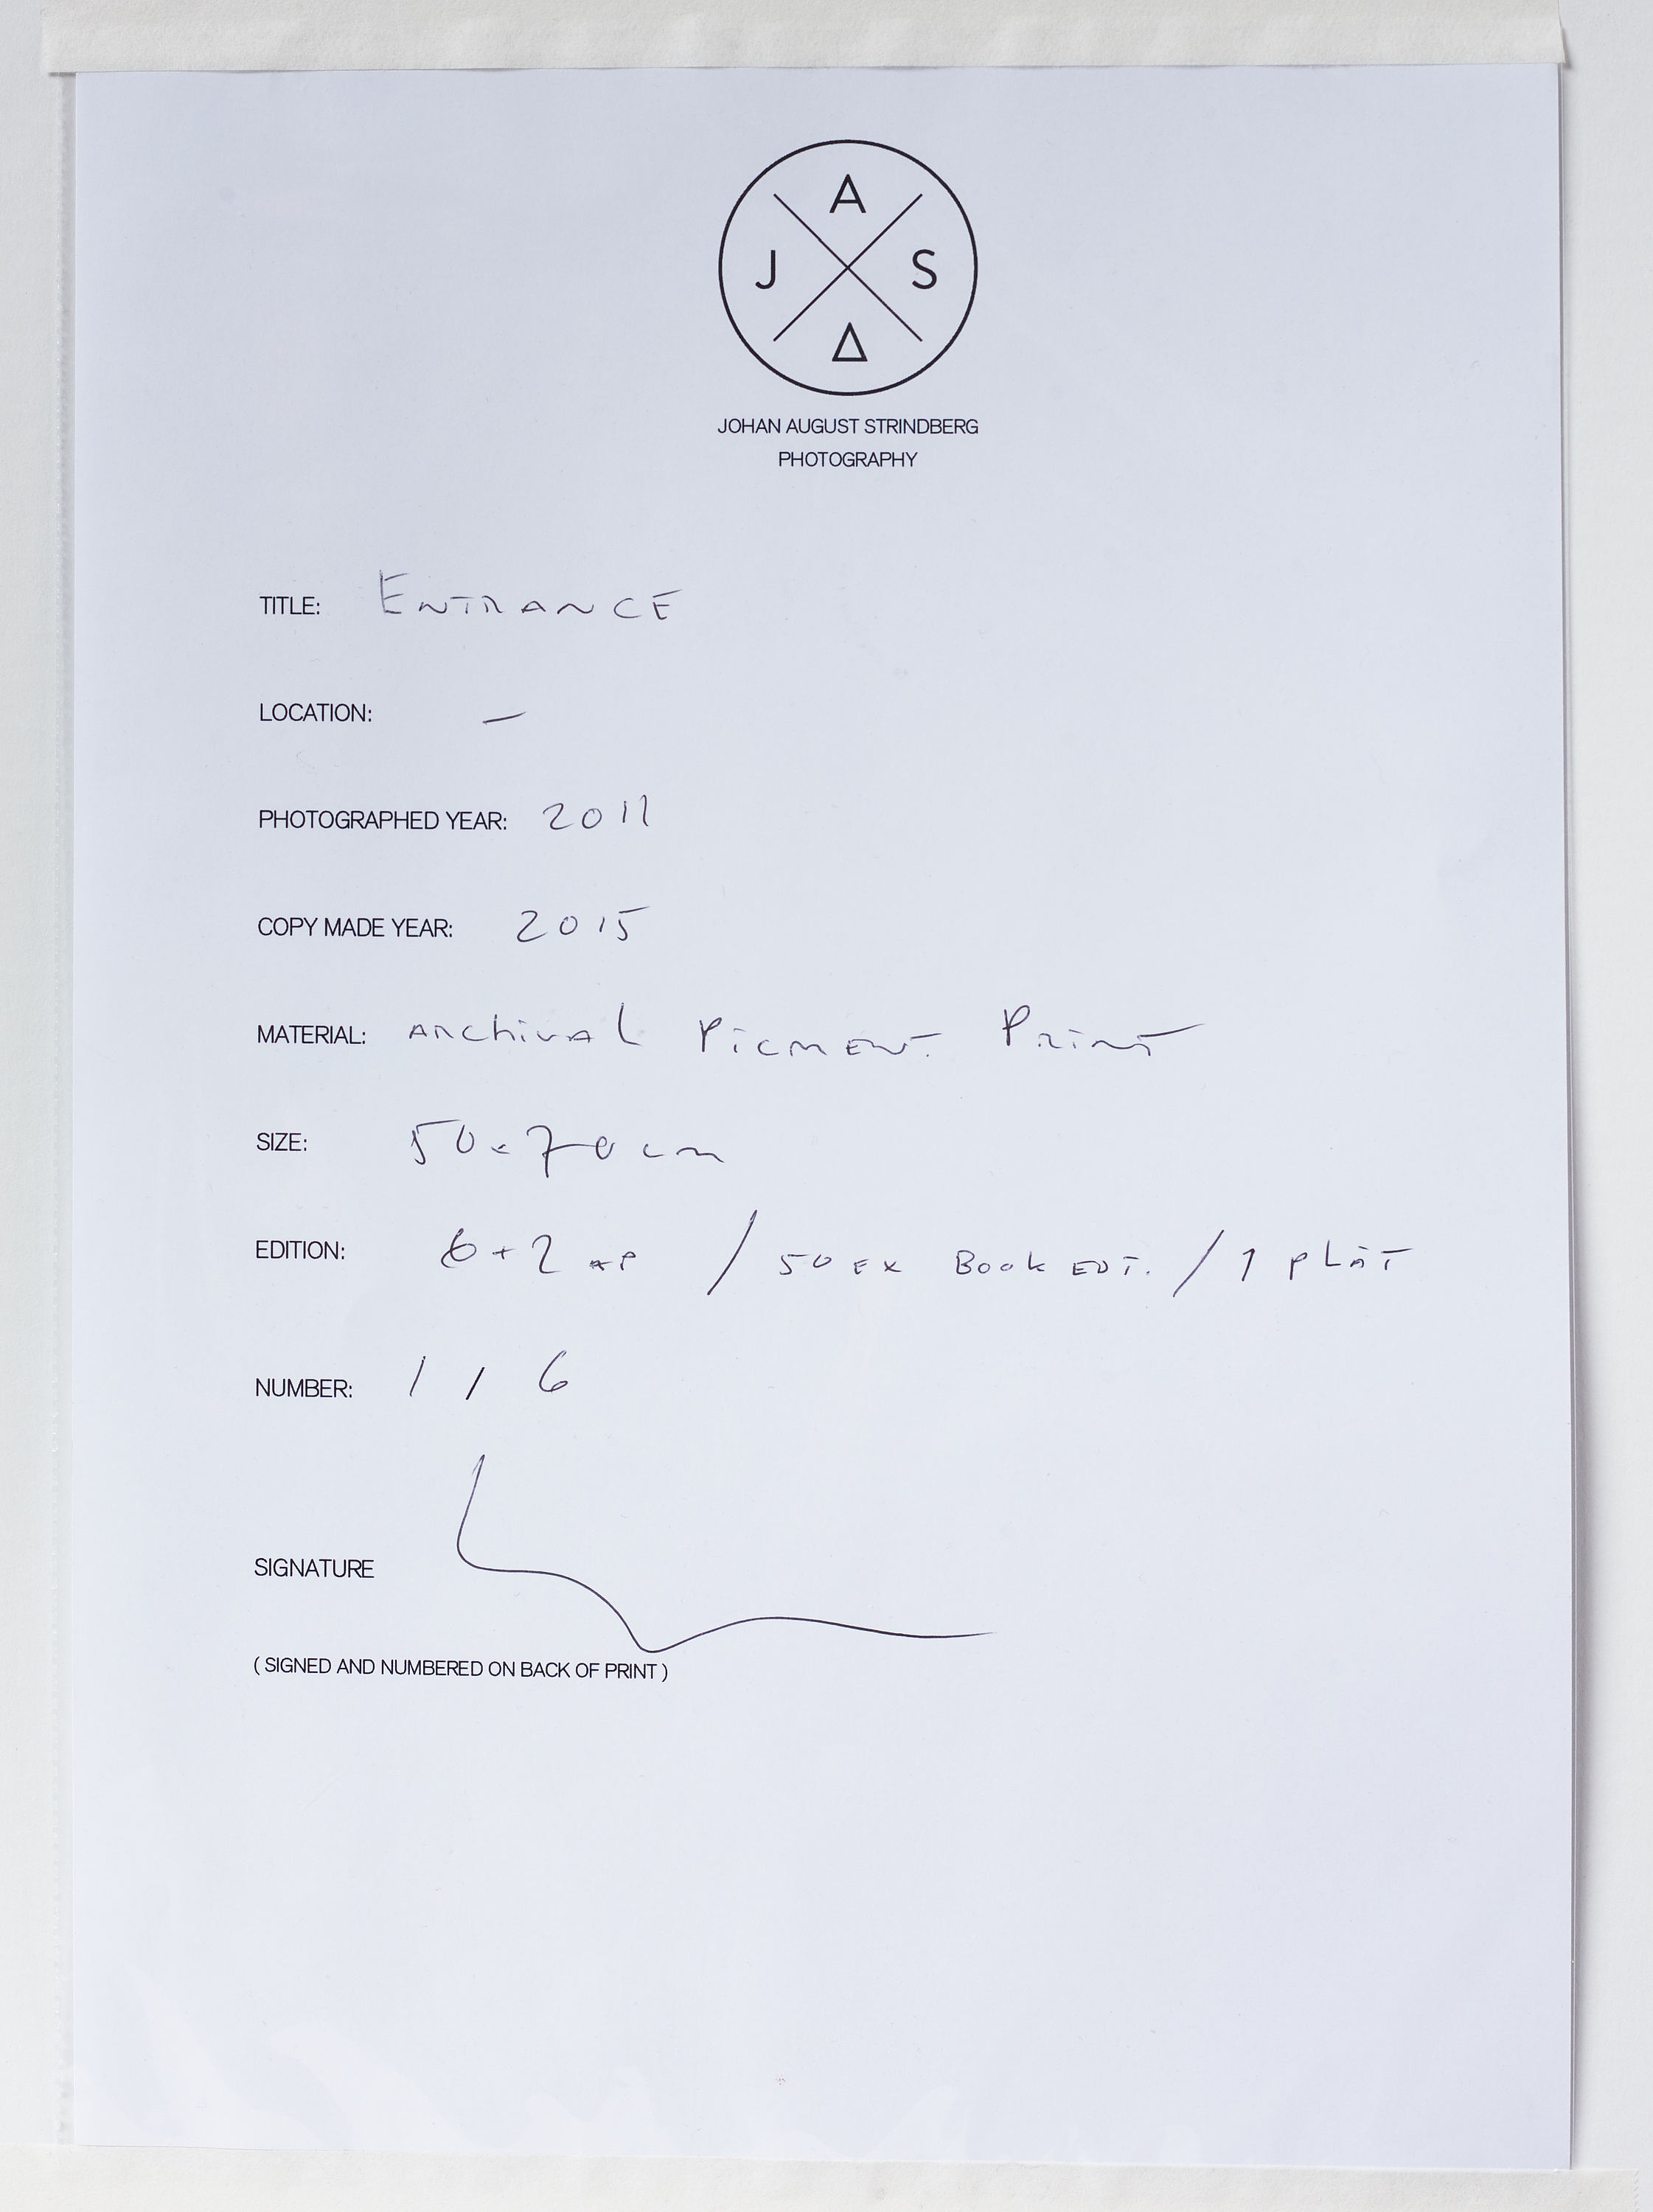 A
J S
Δ
JOHAN AUGUST STRINDBERG
PHOTOGRAPHY
TITLE: ENTRANCE
LOCATION: —
PHOTOGRAPHED YEAR: 2011
COPY MADE YEAR: 2015
MATERIAL: ARChivAL PiGMENT PRiNT
SIZE: 50x70cm
EDITION: 6+2 AP / 50 EX Book EDT. / 1 PLÅT
NUMBER: 1 / 6
SIGNATURE
( SIGNED AND NUMBERED ON BACK OF PRINT )